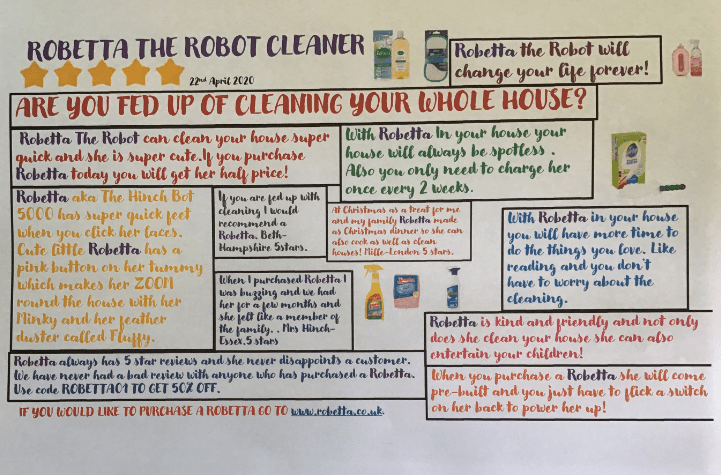 ROBETTA THE ROBOT CLEANER
22nd April 2020
Robetta the Robot will
change your life forever!
ARE YOU FED UP OF CLEANING YOUR WHOLE HOUSE?
Robetta The Robot can clean your house super
quick and she is super cute.If you purchase
Robetta today you will get her half price!
With Robetta In your house your
house will always be spotless .
Also you only need to charge her
once every 2 weeks.
Robetta aka The Hinch Bot
5000 has super quick feet
when you click her laces.
Cute little Robetta has a
pink button on her tummy
which makes her ZOOM
round the house with her
Minky and her feather
duster called Fluffy.
If you are fed up with
cleaning I would
recommend a
Robetta. Beth-
Hampshire 5stars.
At Christmas as a treat for me
and my family Robetta made
as Christmas dinner so she can
also cook as well as clean
houses! Mille-London 5 stars.
With Robetta in your house
you will have more time to
do the things you love. Like
reading and you don't
have to worry about the
cleaning.
When I purchased Robetta I
was buzzing and we had
her for a few months and
she felt like a member of
the family. . Mrs Hinch-
Essex.5 stars
Robetta is kind and friendly and not only
does she clean your house she can also
entertain your children!
Robetta always has 5 star reviews and she never disappoints a customer.
We have never had a bad review with anyone who has purchased a Robetta.
Use code ROBETTA01 TO GET 50% OFF.
When you purchase a Robetta she will come
pre-built and you just have to flick a switch
on her back to power her up!
IF YOU WOULD LIKE TO PURCHASE A ROBETTA GO TO www.robetta.co.uk.